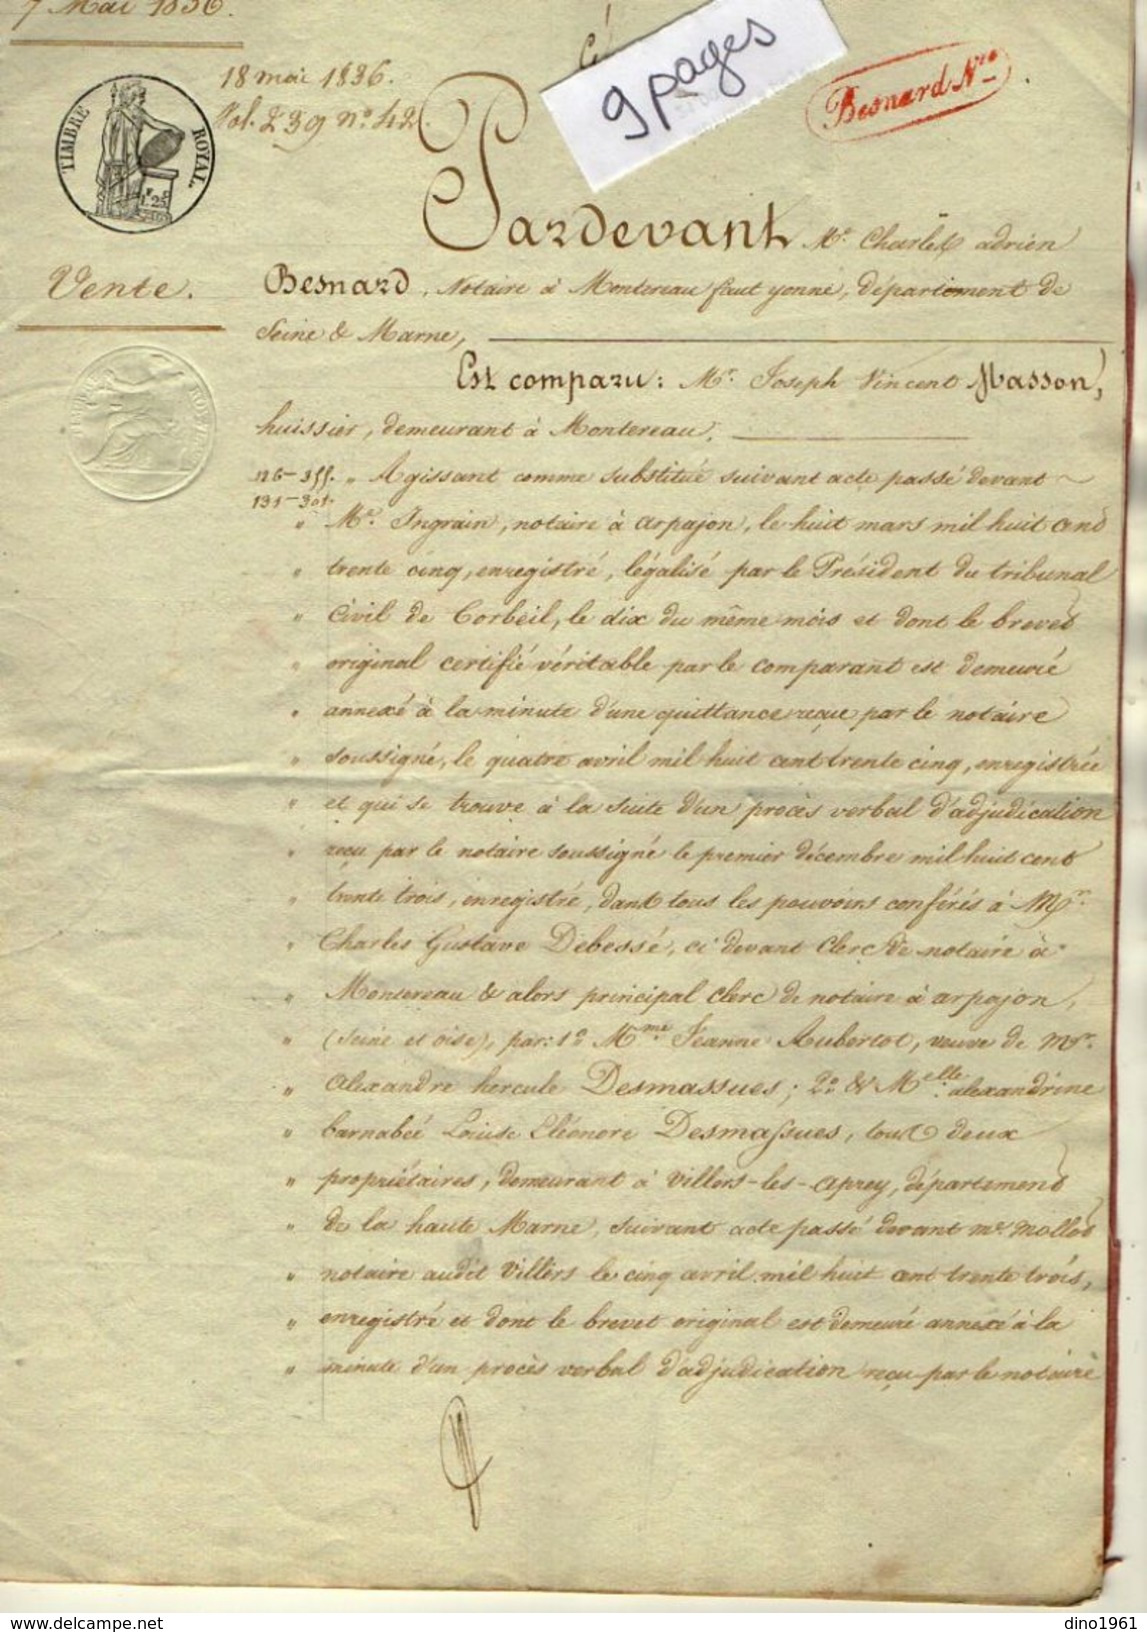 7 Mai 1836.
18 mai 1836.
Vol. 239 n° 42.
9 pages
Besnard Nre
TIMBRE ROYAL
1F 25
Vente.
Pardevant Me. Charles adrien
Besnard, Notaire à Montereau faut yonne, département de
Seine & Marne,
Est comparu: Mr. Joseph Vincent Masson,
huissier, demeurant à Montereau.
" Agissant comme substitué suivant acte passé devant
" Me. Ingrain, notaire à arpajon, le huit mars mil huit cent
" trente cinq, enregistré, légalisé par le Président du tribunal
" civil de Corbeil, le dix du même mois et dont le brevet
" original certifié véritable par le comparant est demeuré
" annexé à la minute d'une quittance reçue par le notaire
" soussigné, le quatre avril mil huit cent trente cinq, enregistrée
" et qui se trouve à la suite d'un procès verbal d'adjudication
" reçu par le notaire soussigné le premier décembre mil huit cent
" trente trois, enregistré, dans tous les pouvoirs conférés à Mr.
" Charles Gustave Debessé, ci devant clerc de notaire à
" Montereau & alors principal clerc de notaire à arpajon,
" (seine et oise), par: 1° Mme Jeanne Aubertot, veuve de mr.
" alexandre hercule Desmassues; 2° & Melle alexandrine
" barnabée Louise Eléonore Desmassues, tout deux
" propriétaires, demeurant à Villers-les-aprey, département
" de la haute Marne, suivant acte passé devant me. mollot
" notaire audit Villers le cinq avril mil huit cent trente trois,
" enregistré et dont le brevet original est demeuré annexé à la
" minute d'un procès verbal d'adjudication reçu par le notaire
dino1961